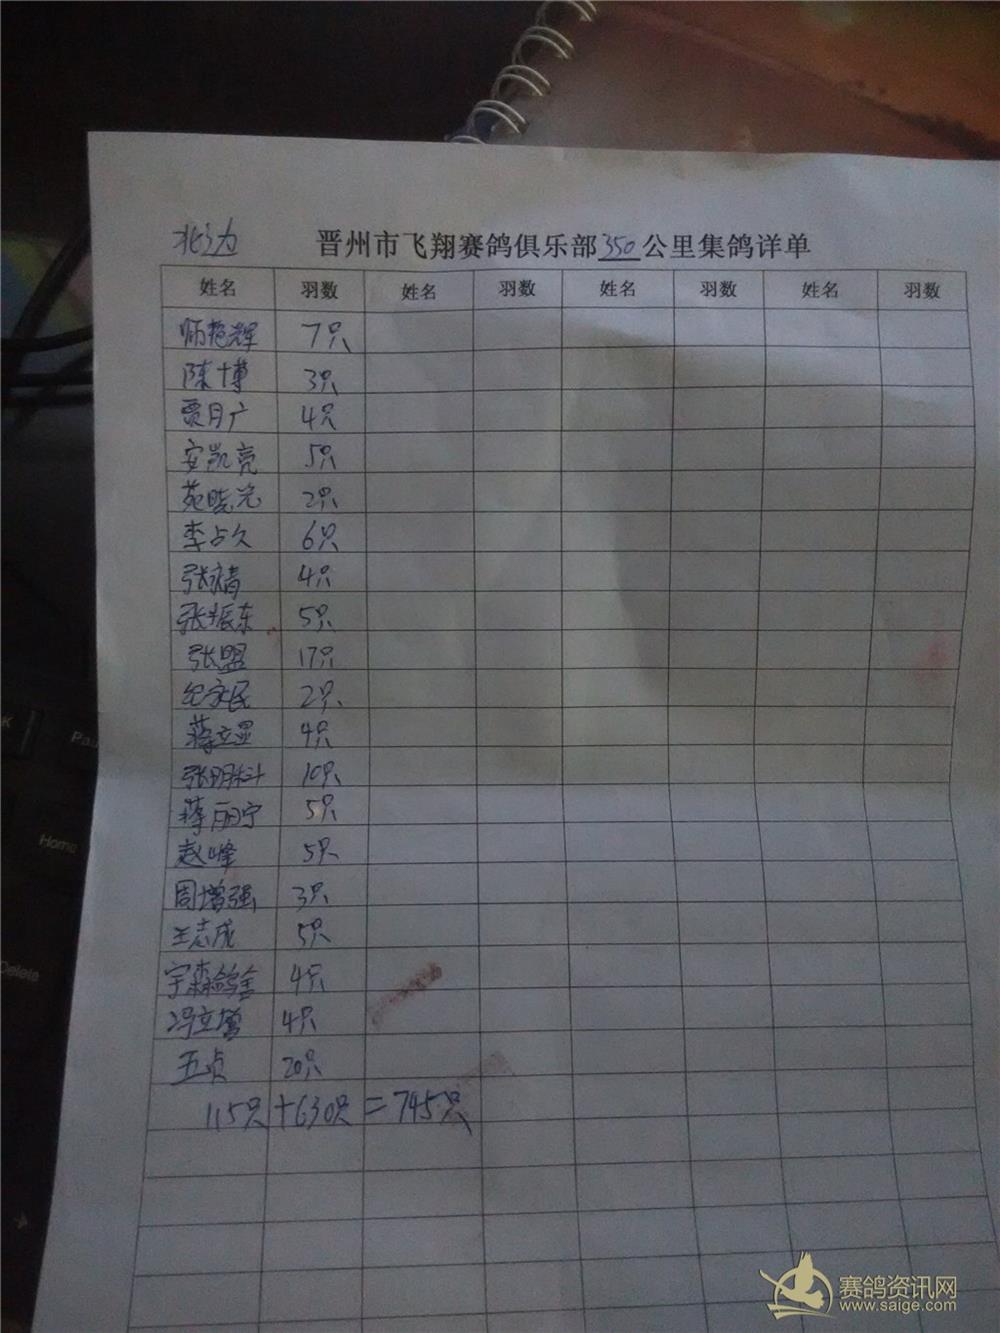 北边 晋州市飞翔赛鸽俱乐部350公里集鸽详单
姓名 羽数 姓名 羽数 姓名 羽数 姓名 羽数
师艳辉 7只
陈博 3只
贾月广 4只
安凯亮 5只
苑晓光 2只
李占久 6只
张靖 4只
张振东 5只
张盟 17只
纪永民 2只
蒋立显 4只
张明科 10只
蒋丽宁 5只
赵峰 5只
周增强 3只
王志成 5只
宇森鸽舍 4只
冯立增 4只
五贞 20只
115只+630只=745只
K
Pau
Home
Delete
赛鸽资讯网
www.saige.com